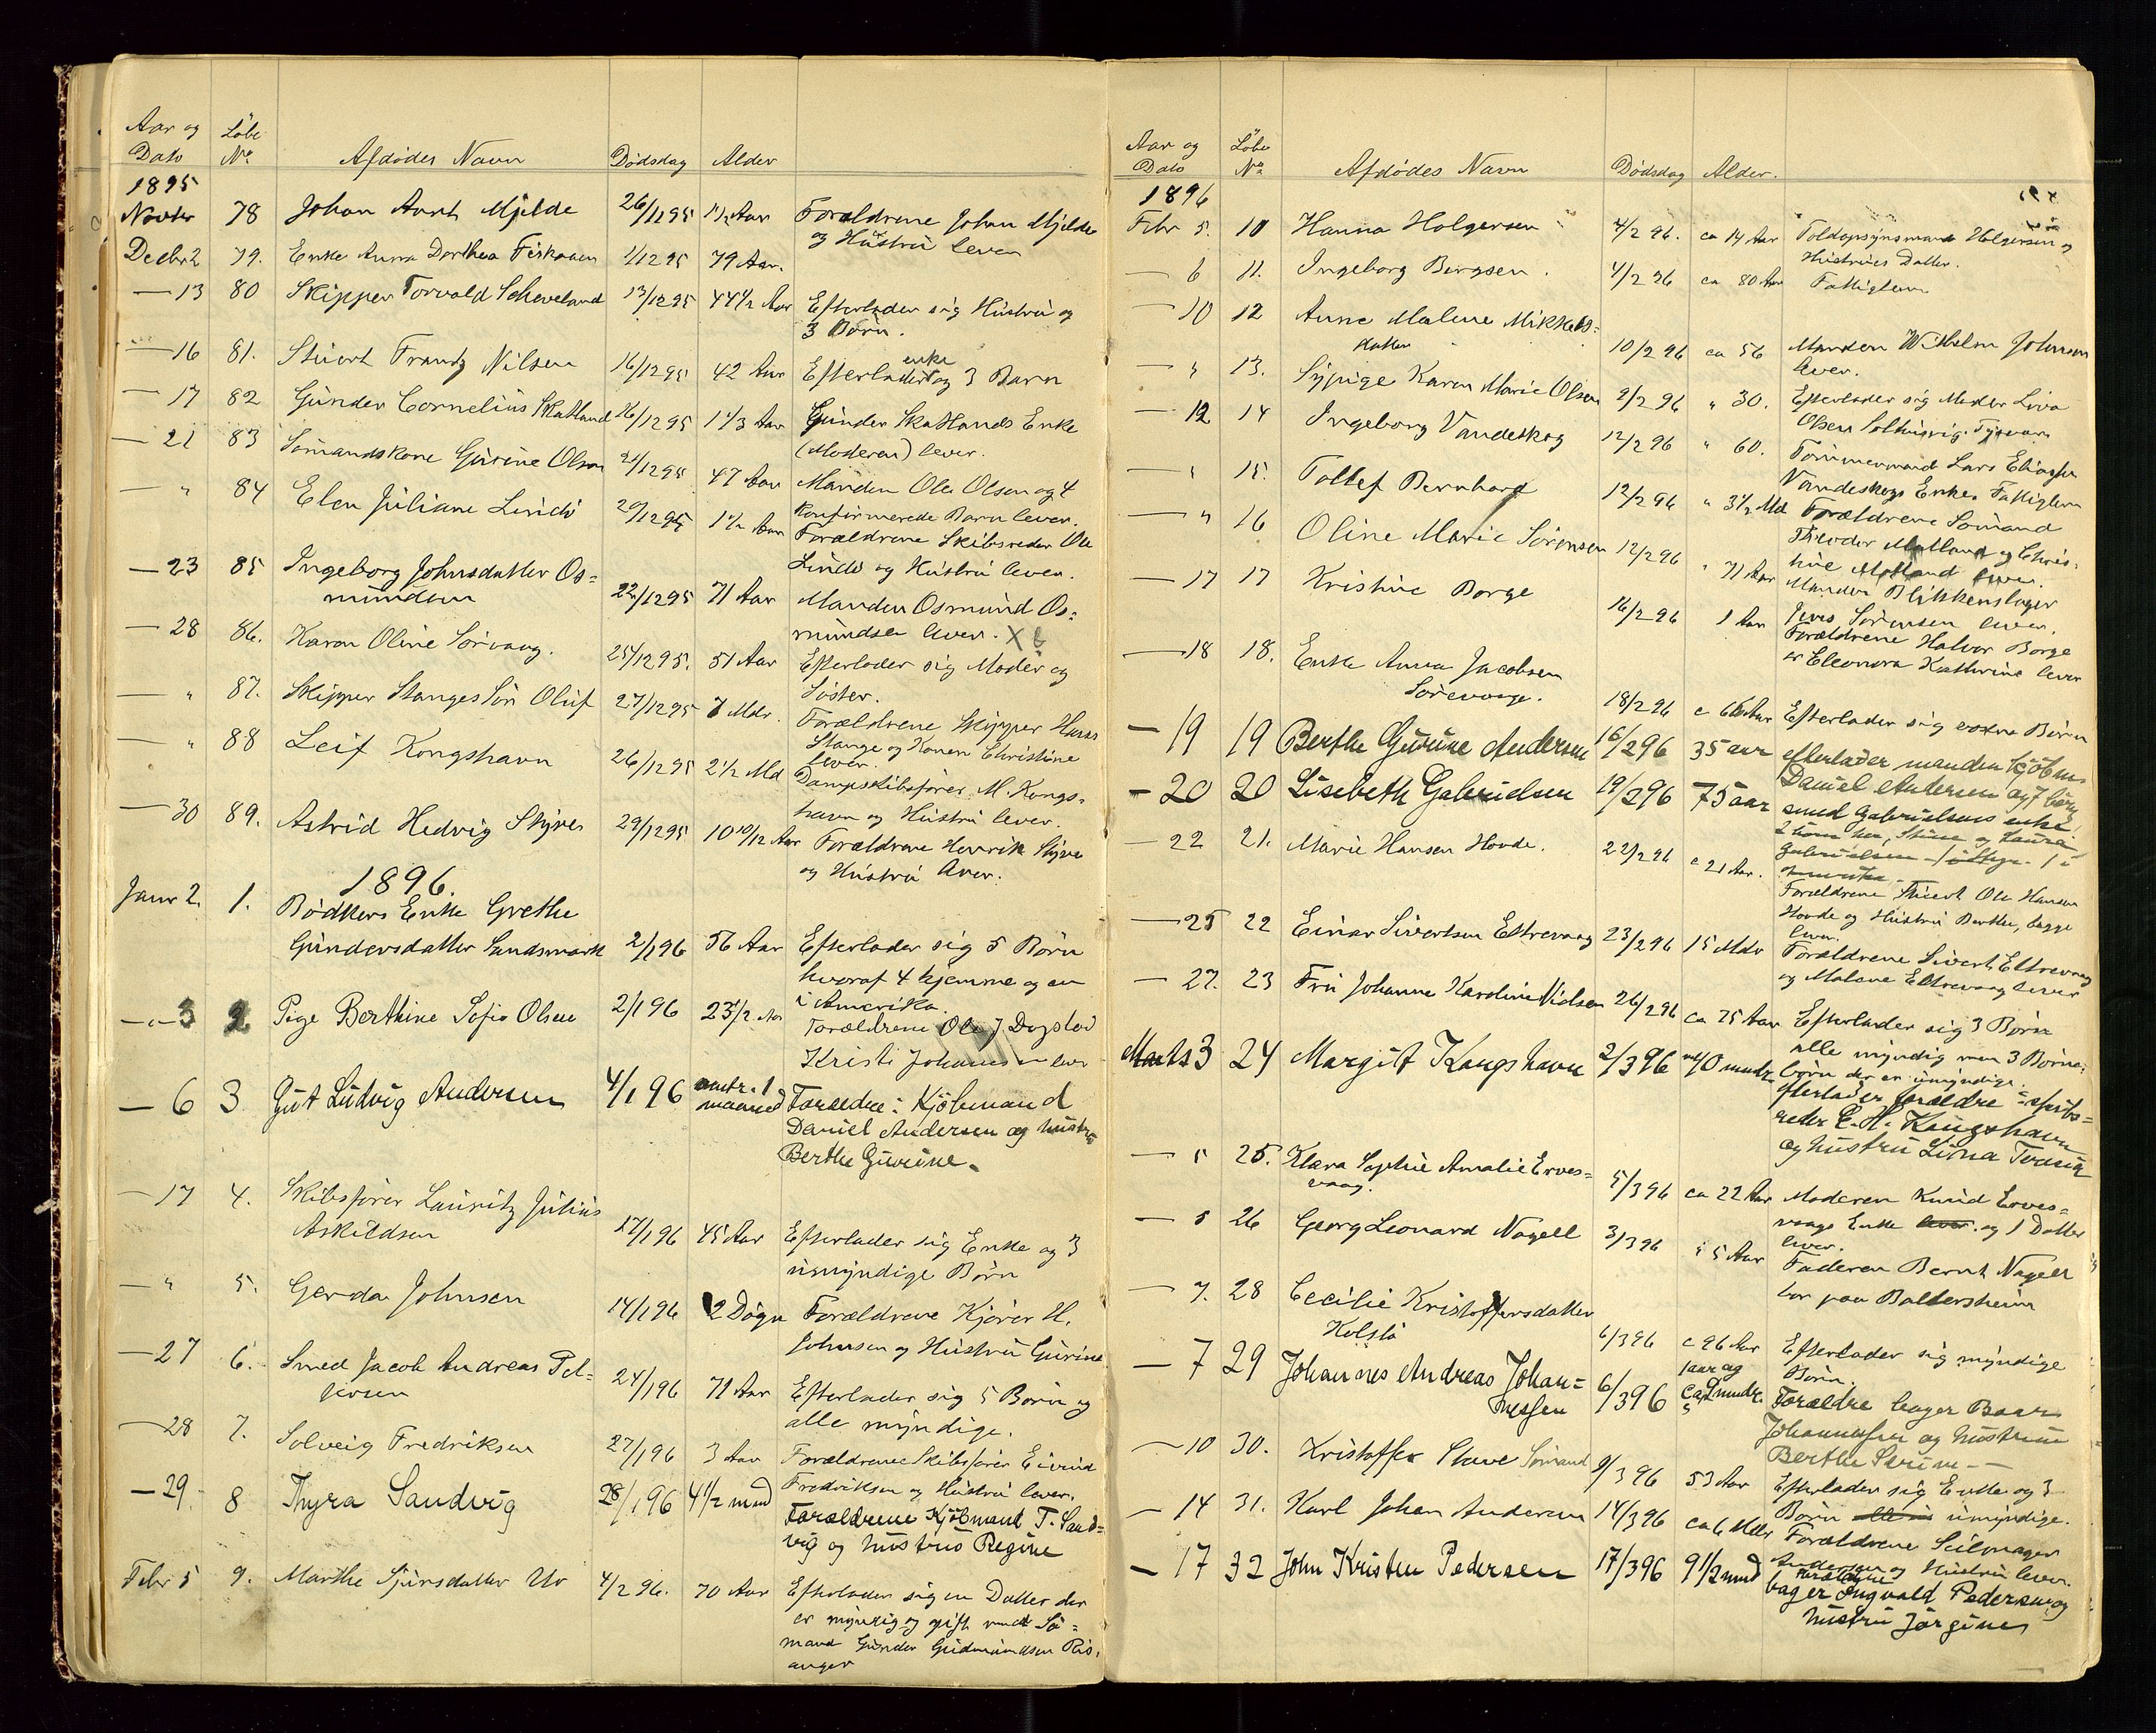 Aar og Dato Löbe No Afdödes Navn Dödsdag Alder
1895
Novbr 78 Johan Aant Mjelde 26/11 95 1 1/2 Aar Forældrene Johan Mjelde
og Hustru lever
Decbr 2 79. Enke Anna Dorthea 1/12 95 79 Aar.
— 13 80 Skipper Torvald Scheveland 13/12 95 44 1/2 Aar Efterlader sig Hustru og
3 Börn.
— 16 81. Stuert Frantz Nilsen 16/12 95 42 Aar Efterlader enke og 3 Barn
— 17 82 Gunder Cornelius Skatland 16/12 95 1 1/3 Aar Gunder Skatlands Enke
(Moderen) lever.
— 21 83 Sömandskone Gurine Olsen 21/12 95 47 Aar Manden Ole Olsen og 4
konfirmerede Barn lever.
— " 84 Elen Juliane Lindö 20/12 95 1 1/2 Aar Forældrene Skibsreder Ole
Lindö og Hustru lever.
— 23 85 Ingeborg Johnsdatter Os=
mundsen 22/12 95 71 Aar Manden Osmund Os=
mundsen lever. X
— 28 86. Karen Oline Sörvaag. 25/12 95. 51 Aar Efterlader sig Moder og
Söster.
— " 87. Skipper Stanges Sön Oluf 27/12 95 7 Mdr. Forældrene Skipper Hans
Stange og Konen Christine
lever.
— " 88 Leif Kongshavn 26/12 95 2 1/2 Md Dampskibsförer M. Kongs=
havn og Hustru lever.
— 30 89. Astrid Hedvig Skjves 29/12 95 10 10/12 Aar Forældrene Henrik
og Hustru lever.
1896.
Janr 2. 1. Bödkers Enke Grethe
Gundersdatter Sandsmark 2/1 96 56 Aar Efterlader sig 5 Börn
hvoraf 4 hjemme og en
i Amerika.
— " 3 2 Pige Berthine Sofie Olsen 2/1 96 23 1/2 Aar Forældrene Ole J
Kristi Johannesen lever
— 6 3 Gut Ludvig Andersen 4/1 96 omtr. 1
maaned Forældre: Kjöbmand
Daniel Andersen og hustru
Berthe Gurine.
— 17 4. Skibsförer Lauritz Julius
Askildsen 17/1 96 45 Aar Efterlader sig Enke og 3
umyndige Börn
— " 5. Gerda Johnsen 14/1 96 2 Dögn Forældrene Kjörer H.
Johnsen og Hustru Gurine
— 27 6. Smed Jacob Andreas Pet=
jersen 24/1 96 71 Aar Efterlader sig 5 Börn og
alle myndige.
— 28 7. Solveig Fredriksen 27/1 96 3 Aar Forældrene Skibsförer Eivind
Fredriksen og Hustru lever.
— 29 8 Thyra Sandvig 28/1 96 4 1/2 mnd Forældrene Kjöbmand T. Sand=
vig og hustru Regine
Febr 5 9. Marthe Sjursdatter Ur 4/2 96. 70 Aar Efterlader sig en Datter der
er myndig og gift med Sö=
mand Gunder Gudmundsen Ris=
anger
Aar og Dato Löbe No Afdödes Navn Dödsdag Alder.
1896
Febr 5. 10 Hanna Holgersen 4/2 96. ca 14 Aar Toldopsynsmand Holgersen og
Hustrues Datter.
— 6 11. Ingeborg Bergsen. 4/2 96 ca 80 Aar Fattiglem
— 10 12 Anne Malene Mikkels=
datter 10/2 96 ca 56 Manden Wilhelm Johnsen
lever.
— " 13. Sypige Karen Marie Olsen 9/2 96 " 30. Efterlader sig Moder Liva
Olsen
— 12 14 Ingeborg Vandeskog 12/2 96 " 60. Tömmermand Lars Eliassen
Vandeskogs Enke. Fattiglem
— " 15. Tollef Bernhard 12/2 96 " 3 1/2 Md Forældrene Sömand
Theodor og Chris=
tine lever.
— " 16 Oline Marie Sörensen 12/2 96 " 71 Aar Manden Blikkenslager
Jens Sörensen lever.
— 17 17 Kristine Borge 16/2 96 1 Aar Forældrene Halvor Borge
er Eleonora Kathrine lever
— 18 18. Enke Anna Jacobsen
Sörevaage. 18/2 96 c 66 Aar Efterlader sig voxne Börn
— 19 19 Berthe Gurine Andersen 16/2 96 35 aar efterlader manden kjöbm.
Daniel Andersen og 7 börn
— 20 20 Lisebeth Gabrielsen 19/2 96 75 aar smed Gabrielsens enke.
— 22 21. Marie Hansen Hovde. 22/2 96 c 21 Aar. Forældrene Stuert Ole Hansen
Hovde og Hustru Berthe, begge
lever.
— 25 22 Einar Sivertsen Eltrevaag 23/2 96 15 Mdr Forældrene Sivert Eltrevaag
og Malene Eltrevaag lever
— 27. 23 Fru Johanne Karoline Nielsen 26/2 96 ca 75 Aar Efterlader sig 3 Börn
alle myndig men 3 Börne=
börn der er umyndige.
Marts 3 24 Margit Kongshavn 2/3 96 10 mndr efterlader forældre: skibs=
reder E. H. Kongshavn
og hustru Lina
— 5 25. Klara Sophie Amalie Erves=
vaag. 5/3 96 ca 22 Aar Moderen Knud Erves=
vaags Enke lever. og 1 Datter
lever.
— 5 26 Georg Leonard Nagell 3/3 96 " 5 Aar Faderen Bernt Nagell
bor paa Baldersheim
— 7. 28 Cecilie Kristoffersdatter
Kolstö 6/3 96 c 96 Aar Efterlader sig myndige
Börn.
— 7 29 Johannes Andreas Johan=
nessen 6/3 96 1 aar og
ca 9 mndr. Forældre bager Baar
Johannessen og hustru
Berthe Serine —
— 10 30. Kristoffer Stave Sömand 9/3 96 53 Aar Efterlader sig Enke og 3
Börn umyndige.
— 14 31. Karl Johan Andersen 14/3 96 ca 6 Mdr Forældrene Seilmager
Andersen og Hustru lever.
— 17 32 John Kristen Pedersen 17/3 96 9 1/2 mnd Forældrene
bager Ingvald Pedersen og
hustru Jörgine